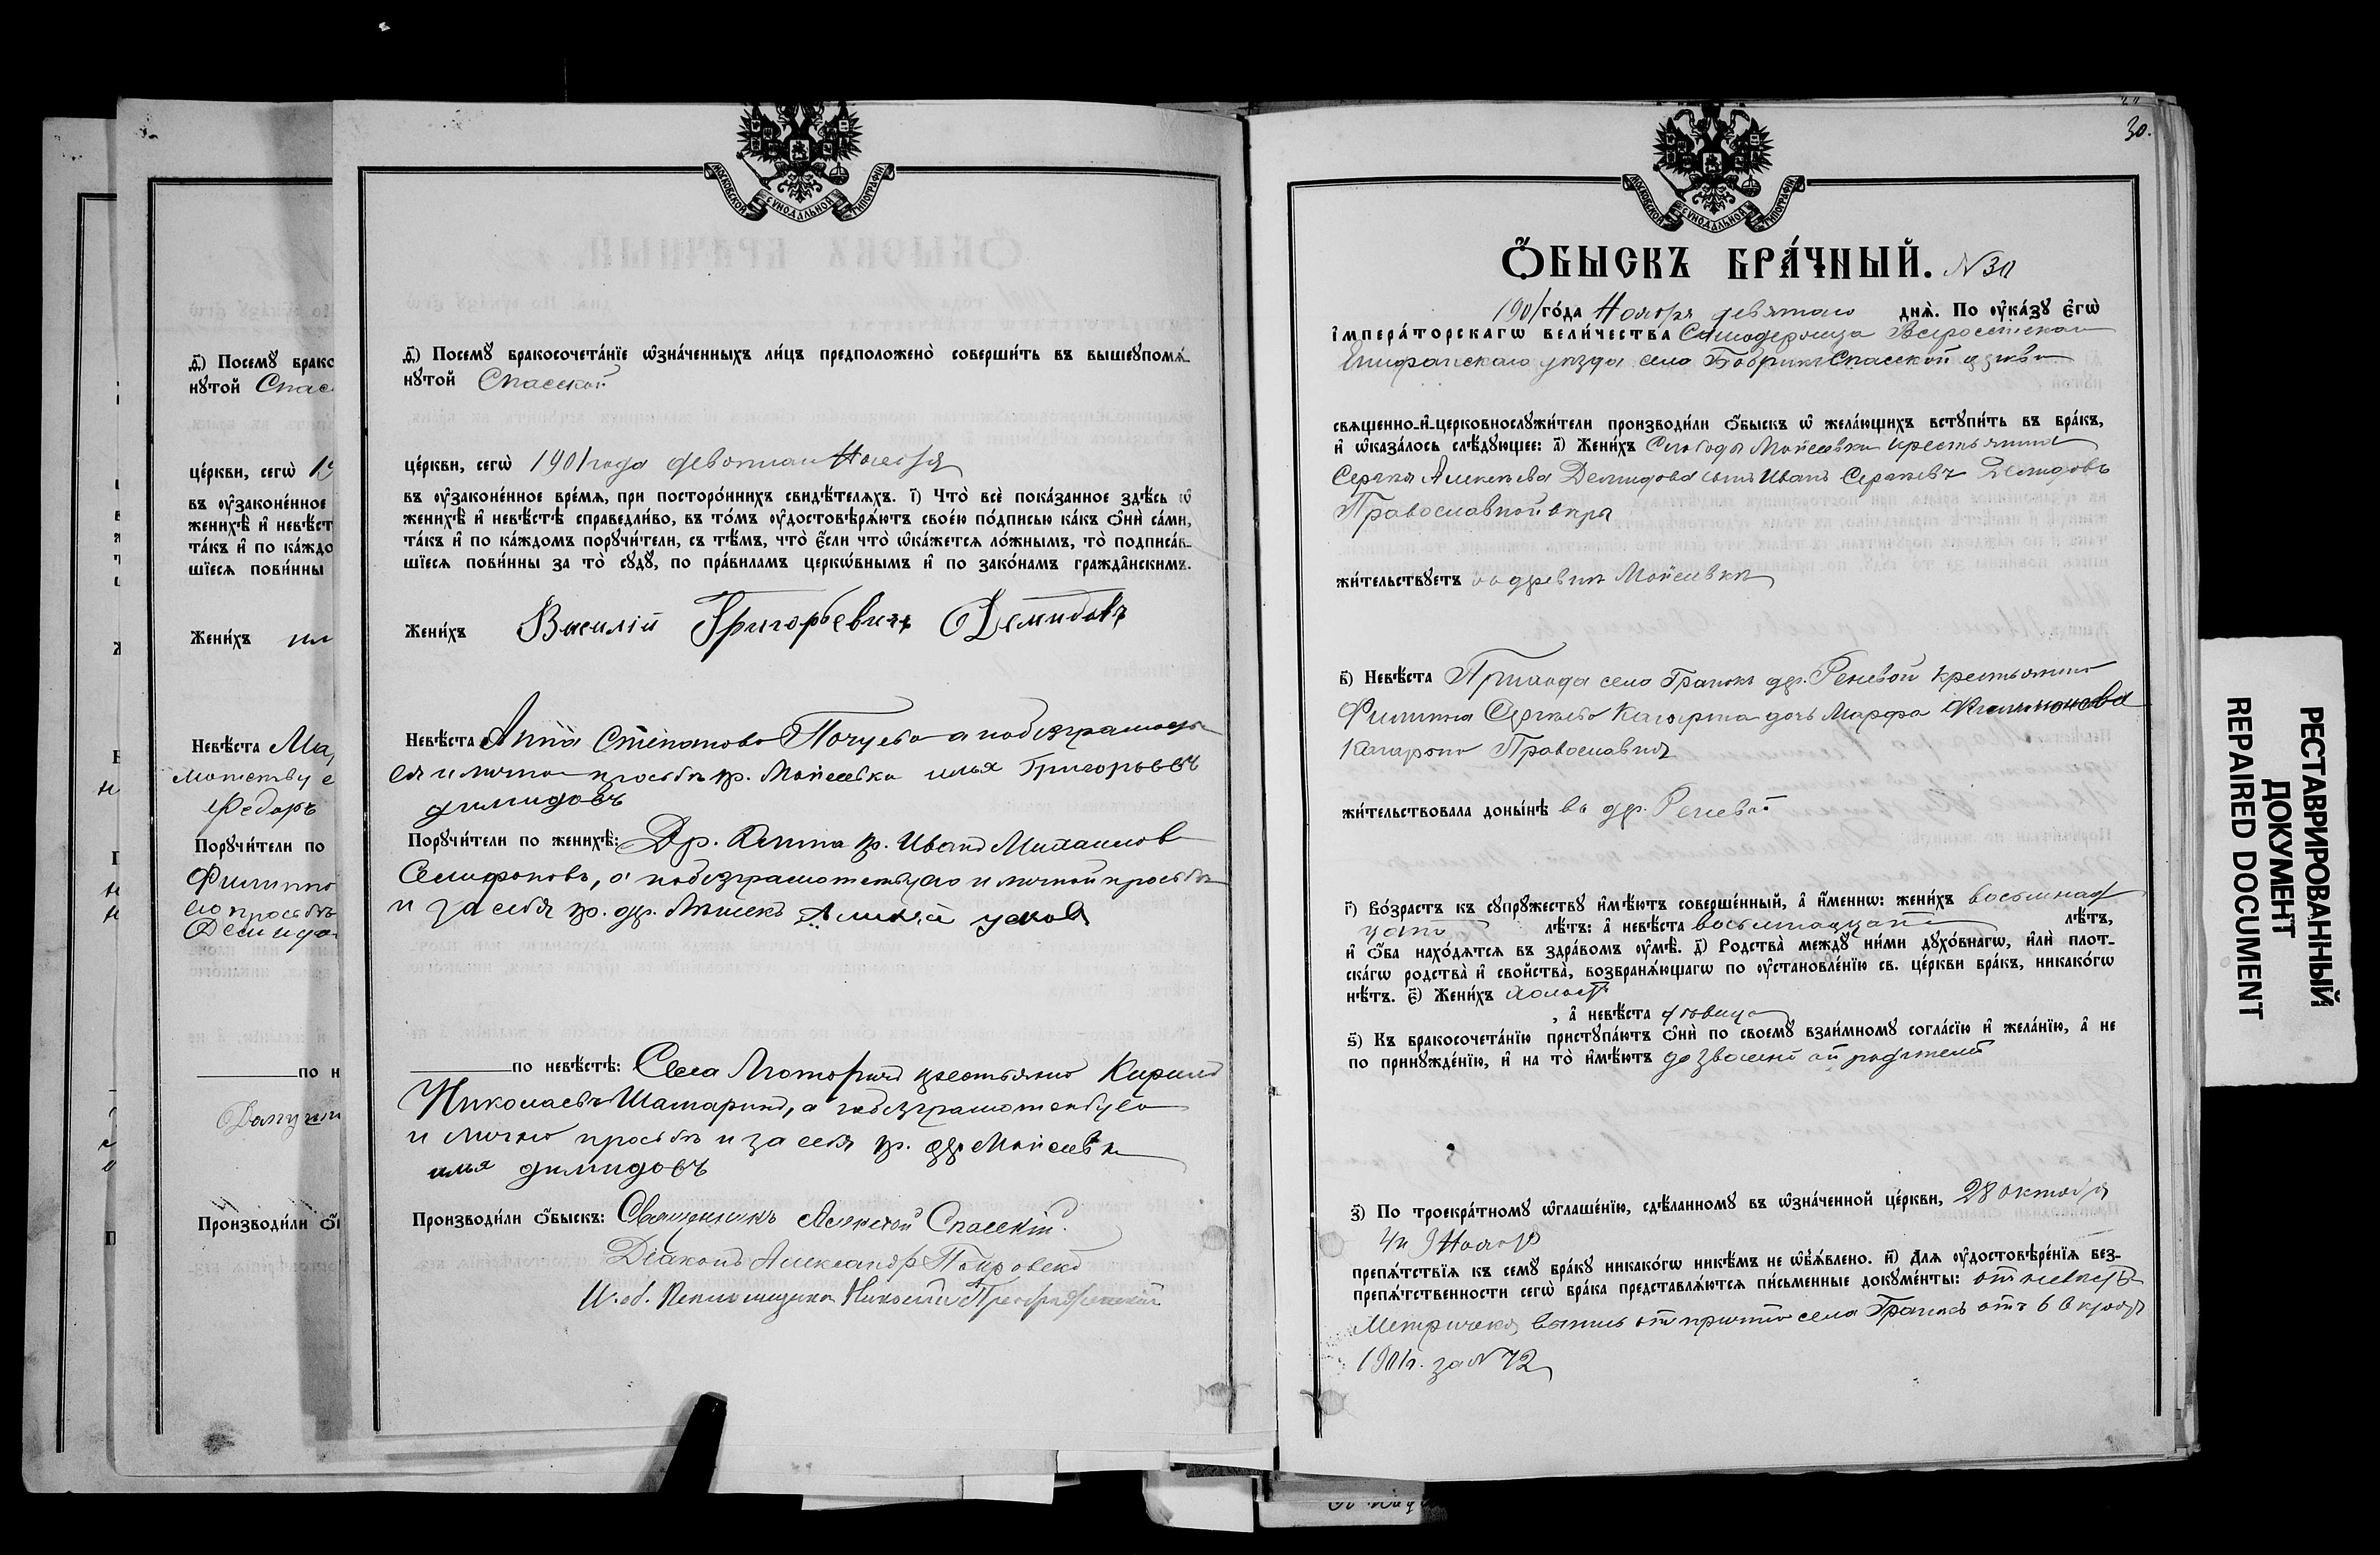 МОСКОВСКОЙ СУНОДАЛЬНОЙ ТИПОГРАФІИ
д҃) Посемꙋ брако
нꙋтой Спас
це́ркви, сегѡ̀ 19
въ ᲂу҆зако́ненное
женихѣ̀ и҆ невѣ́ст
та́къ и҆ по ка́ждо
шїеся пови́нны
Жени́хъ
Невѣ́ста Ма
Федоръ
Порꙋчи́тели по
Филиппо
его просьбѣ
Демидо
по н
Производи́ли ѻ҆
д҃) Посемꙋ бракосочета́нїе ѡ҆зна́ченныхъ ли́цъ предположено̀ соверши́ть въ вышеꙋпомя́-
нꙋтой Спасской
це́ркви, сегѡ̀ 1901 года девятаго Ноября
въ ᲂу҆зако́ненное вре́мя, при посторо́ннихъ свидѣ́теляхъ. і҃) Что̀ всѐ пока́занное здѣ́сь ѡ҆
женихѣ̀ и҆ невѣ́стѣ справедли́во, въ то́мъ ᲂу҆достовѣря́ютъ свое́ю по́дписью ка́къ ѻ҆нѝ са́ми,
та́къ и҆ по ка́ждомъ порꙋчи́тели, съ тѣ́мъ, что̀ є҆́сли что̀ ѡ҆ка́жется ло́жнымъ, то̀ подписа́в-
шїеся пови́нны за то̀ сꙋдꙋ̀, по пра́виламъ церко́внымъ и҆ по зако́намъ гражда́нскимъ.
Жени́хъ Василій Григорьевичъ Демидовъ
Невѣ́ста Анна Степанова а по безграмот
ея и личной просьбѣ кр. Моисеевки илья Григорьевъ
димидовъ
Порꙋчи́тели по женихѣ̀: Др. кр. Иванъ Михаиловъ
а по безграмотству его и личной просьбѣ
и за себя кр. др. Алексѣй усковъ
по невѣ́стѣ: Села крестьянинъ Кирилъ
Николаевъ Шатаринъ, а по безграмотству его
и личной просьбѣ и за себя кр. др. Моисеевки
илья димидовъ
Производи́ли ѻ҆́быскъ: Священникъ Алексѣй Спасскій.
Діаконъ Александръ Покровскій
И. об. Псаломщика Николай Преображенскій
МОСКОВСКОЙ СУНОДАЛЬНОЙ ТИПОГРАФІИ
30.
Ѻ҆́БЫСКЪ БРА́ЧНЫЙ. N 30
1901 го́да Ноября девятаго дня̀. По ᲂу҆ка́зꙋ є҆гѡ̀
і҆мпера́торскагѡ вели́чества Самодержца Всероссійскаго
Епифанскаго уѣзда села Бобрики Спасской церкви
свяще́нно-и҆-церковнослꙋжи́тели производи́ли ѻ҆́быскъ ѡ҆ жела́ющихъ встꙋпи́ть въ бра́къ,
и҆ ѡ҆каза́лось слѣ́дꙋющее: а҃) Жени́хъ Слободы Моисеевки крестьянина
Сергѣя Алексѣева Демидова сынъ Иванъ Сергѣевъ Демидовъ
Православной вѣры
жи́тельствꙋетъ въ деревнѣ Моисеевкѣ
в҃) Невѣ́ста Прихода села Грановъ др. Реневой крестьянина
Филиппа Сергѣева дочь Марфа Филиппова
Православная
жи́тельствовала доны́нѣ въ др. Реневой
г҃) Во́зрастъ къ сꙋпрꙋ́жествꙋ и҆мѣ́ютъ соверше́нный, а҆ и҆́меннѡ: жени́хъ восемнад
цати лѣ́тъ: а҆ невѣ́ста восемнадцати лѣ́тъ,
и҆ ѻ҆́ба нахо́дятся въ здра́вомъ ᲂу҆мѣ̀. д҃) Родства̀ междꙋ̀ ни́ми дꙋхо́внагѡ, и҆лѝ плот-
ска́гѡ родства̀ и҆ свойства̀, возбраня́ющагѡ по ᲂу҆становле́нїю св. це́ркви бра́къ, никако́гѡ
нѣ́тъ. є҃) Жени́хъ холостъ
, а҆ невѣ́ста девица
ѕ҃) Къ бракосочета́нїю пристꙋпа́ютъ ѻ҆нѝ по своемꙋ̀ взаи́мномꙋ согла́сїю и҆ жела́нїю, а҆ не
по принꙋжде́нїю, и҆ на то̀ и҆мѣ́ютъ дозволеніе отъ родителей
з҃) По троекра́тномꙋ ѡ҆глаше́нїю, сдѣ́ланномꙋ въ ѡ҆зна́ченной це́ркви, 28 октября
4 и 9 Ноября
препя́тствїя къ семꙋ̀ бра́кꙋ никако́гѡ никѣ́мъ не ѡ҆б̾я́влено. и҃) Для ᲂу҆достовѣре́нїя без-
препя́тственности сегѡ̀ бра́ка представля́ются пи́сьменные докꙋме́нты: отъ невѣсты
Метрическая выпись отъ причта села Грановъ отъ 6 октября
1901 г. за N 72
РЕСТАВРИРОВАННЫЙ
ДОКУМЕНТ
REPAIRED DOCUMENT